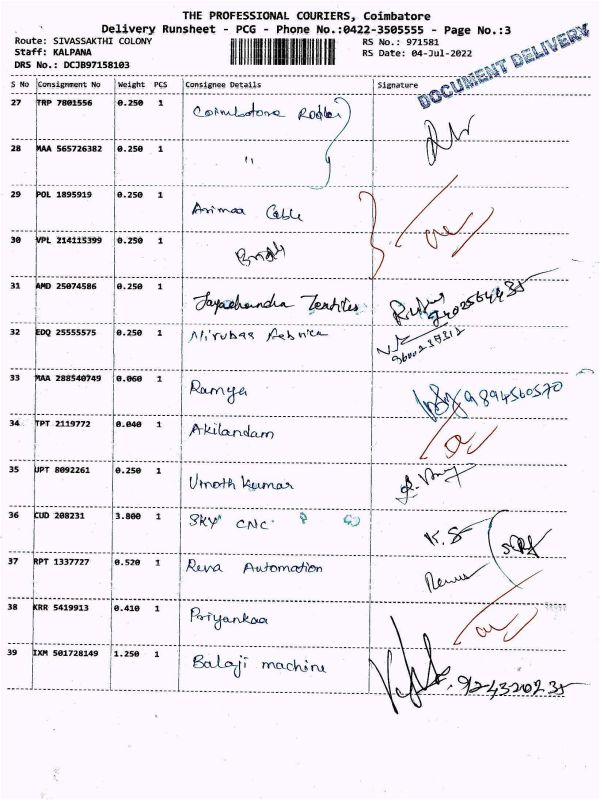 THE PROFESSIONAL COURIERS, Coimbatore
Delivery Runsheet - PCG - Phone No.:0422-3505555 - Page No.:3
Route: SIVASSAKTHI COLONY
RS No.: 971581
Staff: KALPANA
RS Date: 04-Jul-2022
DRS No.: DCJB97158103
DOCUMENT DELIVERY
S No Consignment No Weight PCS Consignee Details Signature
27 TRP 7801556 0.250 1 Coimbatore
28 MAA 565726382 0.250 1 "
29 POL 1895919 0.250 1 Arimaa Cable
30 VPL 214115399 0.250 1
31 AMD 25074586 0.250 1 Jayachandra Textiles
32 EDQ 25555575 0.250 1
33 MAA 288540749 0.060 1 Ramya 9894560570
34 TPT 2119772 0.040 1 Akilandam
35 UPT 8092261 0.250 1 Vinoth Kumar
36 CUD 208231 3.800 1 SKY CNC K.S
37 RPT 1337727 0.520 1 Reva Automation
38 KRR 5419913 0.410 1 Priyankaa
39 IXM 501728149 1.250 1 Balaji machine